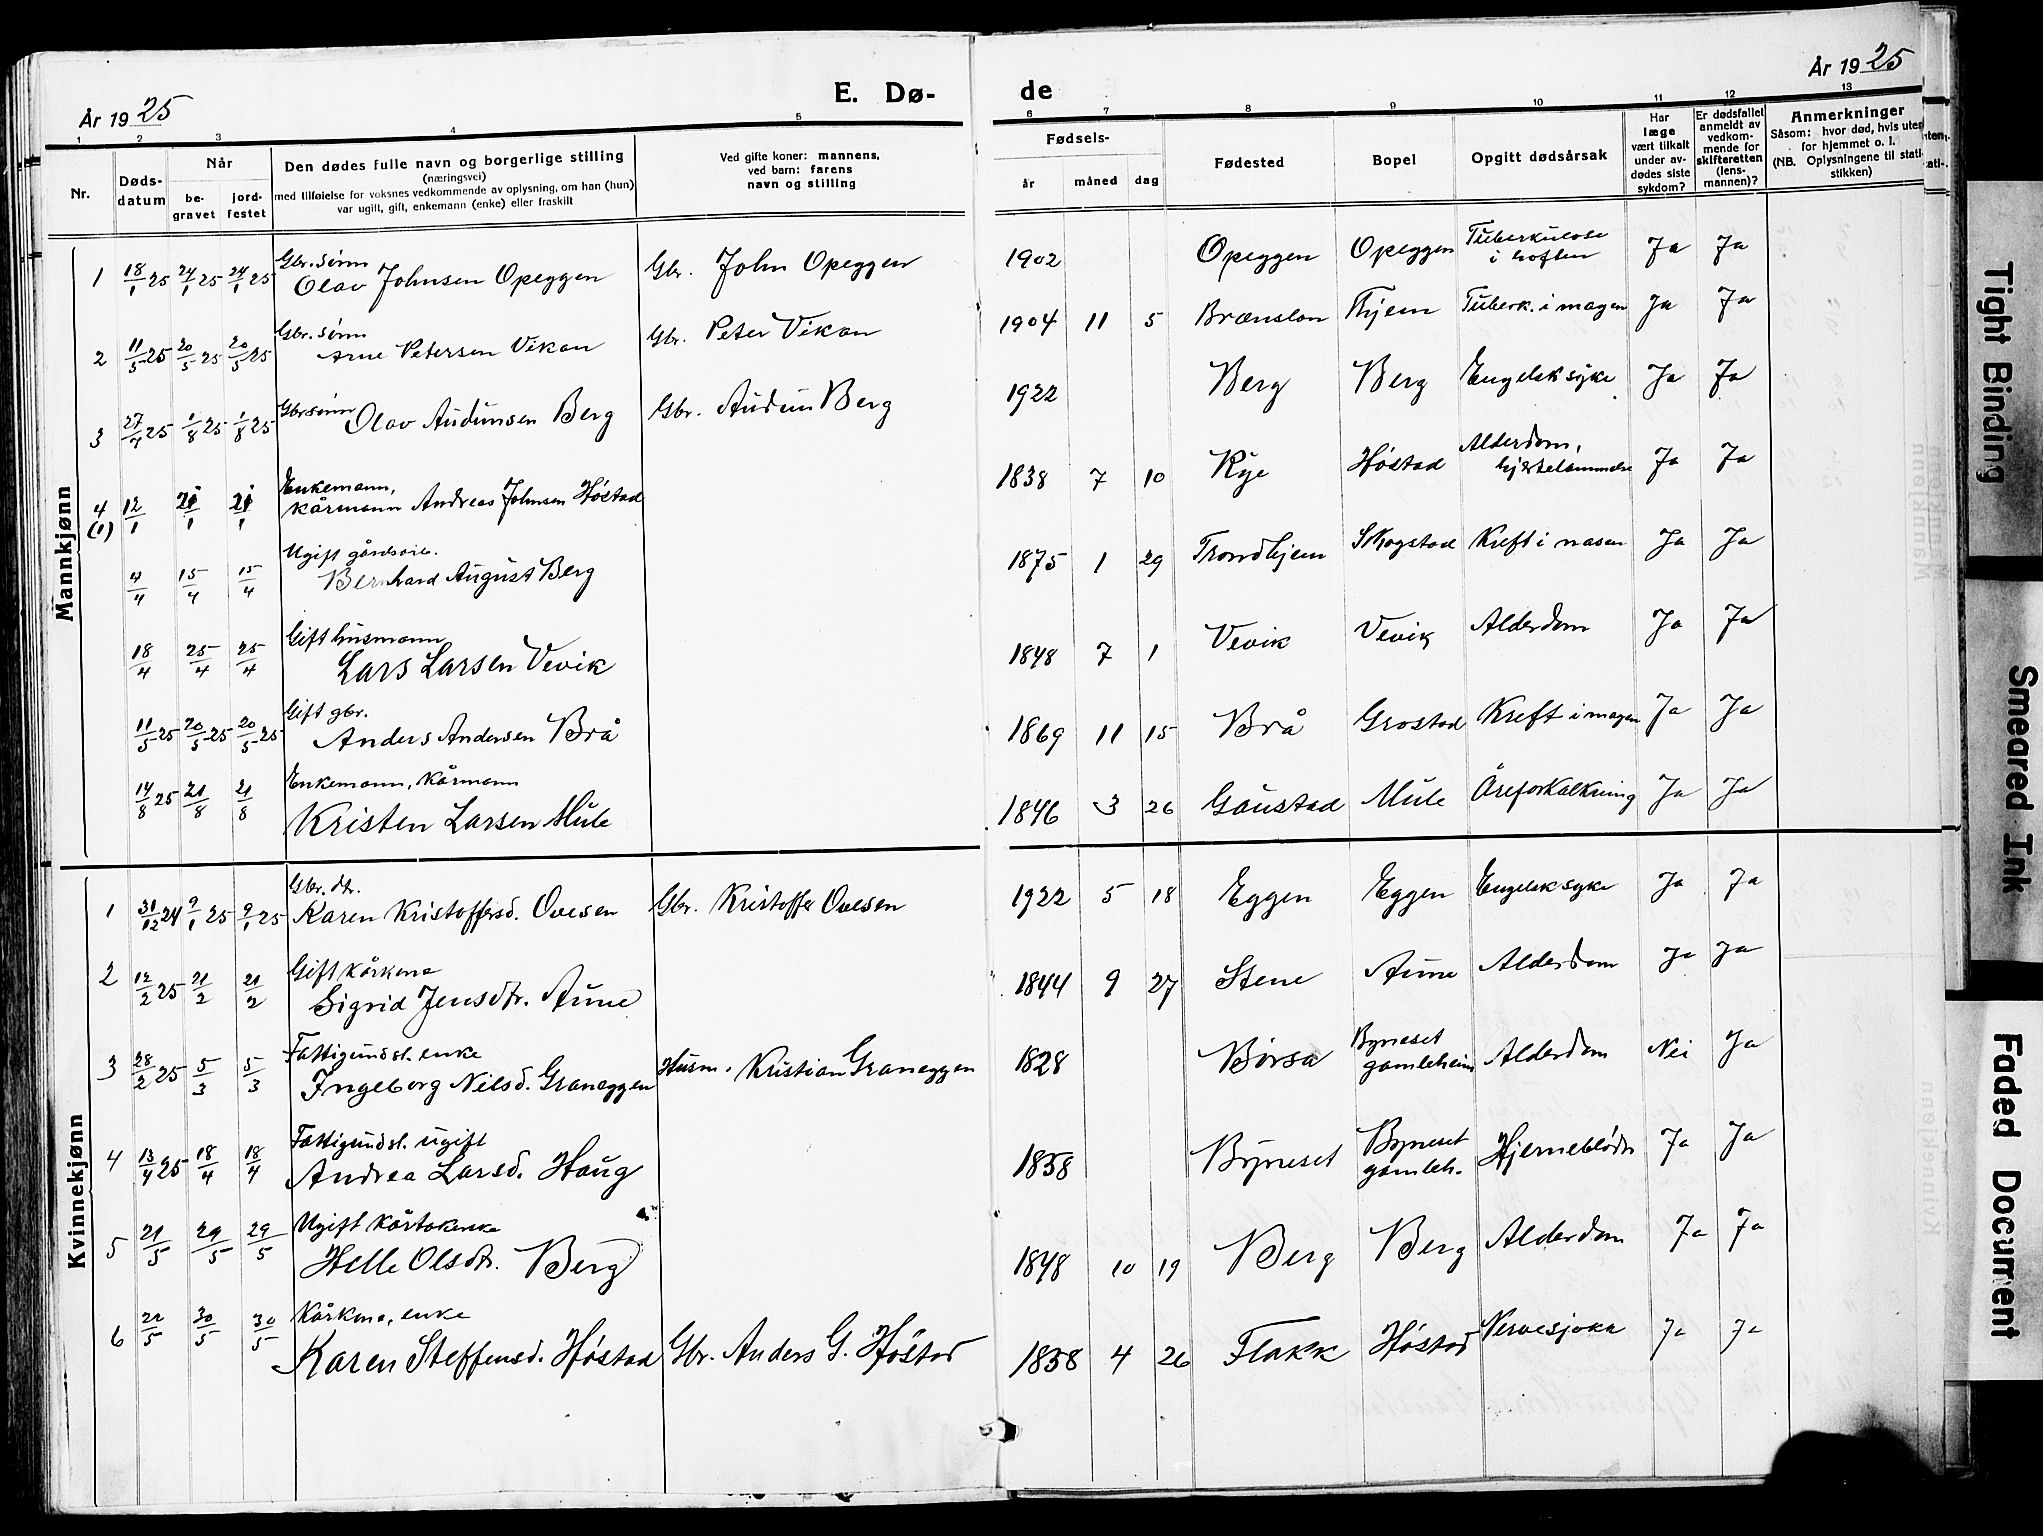 År 1925
E. Dø-
de
År 1925
1 2 3 4 5 6 7 8 9 10 11 12 13
Nr.
Døds-
datum
Når
be-
gravet
jord-
festet
Den dødes fulle navn og borgerlige stilling
(næringsvei)
med tilføielse for voksnes vedkommende av oplysning, om han (hun)
var ugift, gift, enkemann (enke) eller fraskilt
Ved gifte koner: mannens,
ved barn: farens
navn og stilling
Fødsels-
år måned dag
Fødested
Bopel
Opgitt dødsårsak
Har
læge
vært tilkalt
under av-
dødes siste
sykdom?
Er dødsfallet
anmeldt av
vedkom-
mende for
skifteretten
(lens-
mannen)?
Anmerkninger
Såsom: hvor død, hvis uten-
for hjemmet o. l.
(NB. Oplysningene til stati-
stikken)
Mannkjønn
1 18/1 25 24/1 25 24/1 25 Gbr. sønn
Olav Johnsen Opeggen Gbr. John Opeggen 1902 Opeggen Opeggen Tuberkulose
i hoften Ja Ja
2 11/5 25 20/5 25 20/5 25 Gbr. sønn
Arne Petersen Vikan Gbr. Peter Vikan 1904 11 5 Brænslan Thjem Tuberk. i magen Ja Ja
3 27/7 25 1/8 25 1/8 25 Gbr sønn Olav Audunsen Berg Gbr. Audun Berg 1922 Berg Berg Engelsk syke Ja Ja
4 (1) 12/1 21/1 21/1 Enkemann,
kårmann Andreas Johnsen Høstad 1838 7 10 Rye Høstad Alderdom,
hjertelammelse Ja Ja
4/4 15/4 15/4 Ugift gårdsarb.
Bernhard August Berg 1875 1 29 Trondhjem Skogstad Kreft i nasen Ja Ja
18/4 25/4 25/4 Gift husmann
Lars Larsen Vevik 1848 7 1 Vevik Vevik Alderdom Ja Ja
11/5 25 20/5 25 20/5 25 Gift gbr.
Anders Andersen Brå 1869 11 15 Brå Grostad Kreft i magen Ja Ja
14/8 25 21/8 21/8 Enkemann, kårmann
Kristen Larsen Mule 1846 3 26 Gaustad Mule Åreforkalkning Ja Ja
Kvinnekjønn
1 31/12 24 9/1 25 9/1 25 Gbr. dtr.
Karen Kristoffersd. Ovesen Gbr. Kristoffer Ovesen 1922 5 18 Eggen Eggen Engelsk syke Ja Ja
2 12/2 25 21/2 21/2 Gift kårkone
Sigrid Jensdtr. Aune 1844 9 27 Stene Aune Alderdom Ja Ja
3 28/2 25 5/3 5/3 Fattigundst. enke
Ingeborg Nilsd. Graneggen Husm. Kristian Graneggen 1828 Børsa Byneset
gamleheim Alderdom Nei Ja
4 13/4 25 18/4 18/4 Fattigundst. ugift
Andrea Larsd. Haug 1858 Byneset Byneset
gamleh. Hjerneblødn Ja Ja
5 21/5 29/5 29/5 Ugift
Helle Olsdtr. Berg 1848 10 19 Berg Berg Alderdom Ja Ja
6 22/5 30/5 30/5 Kårkone, enke
Karen Steffensd. Høstad Gbr. Anders G. Høstad 1858 4 26 Flakk Høstad Ja Ja
Tight Binding
Smeared Ink
Faded Document